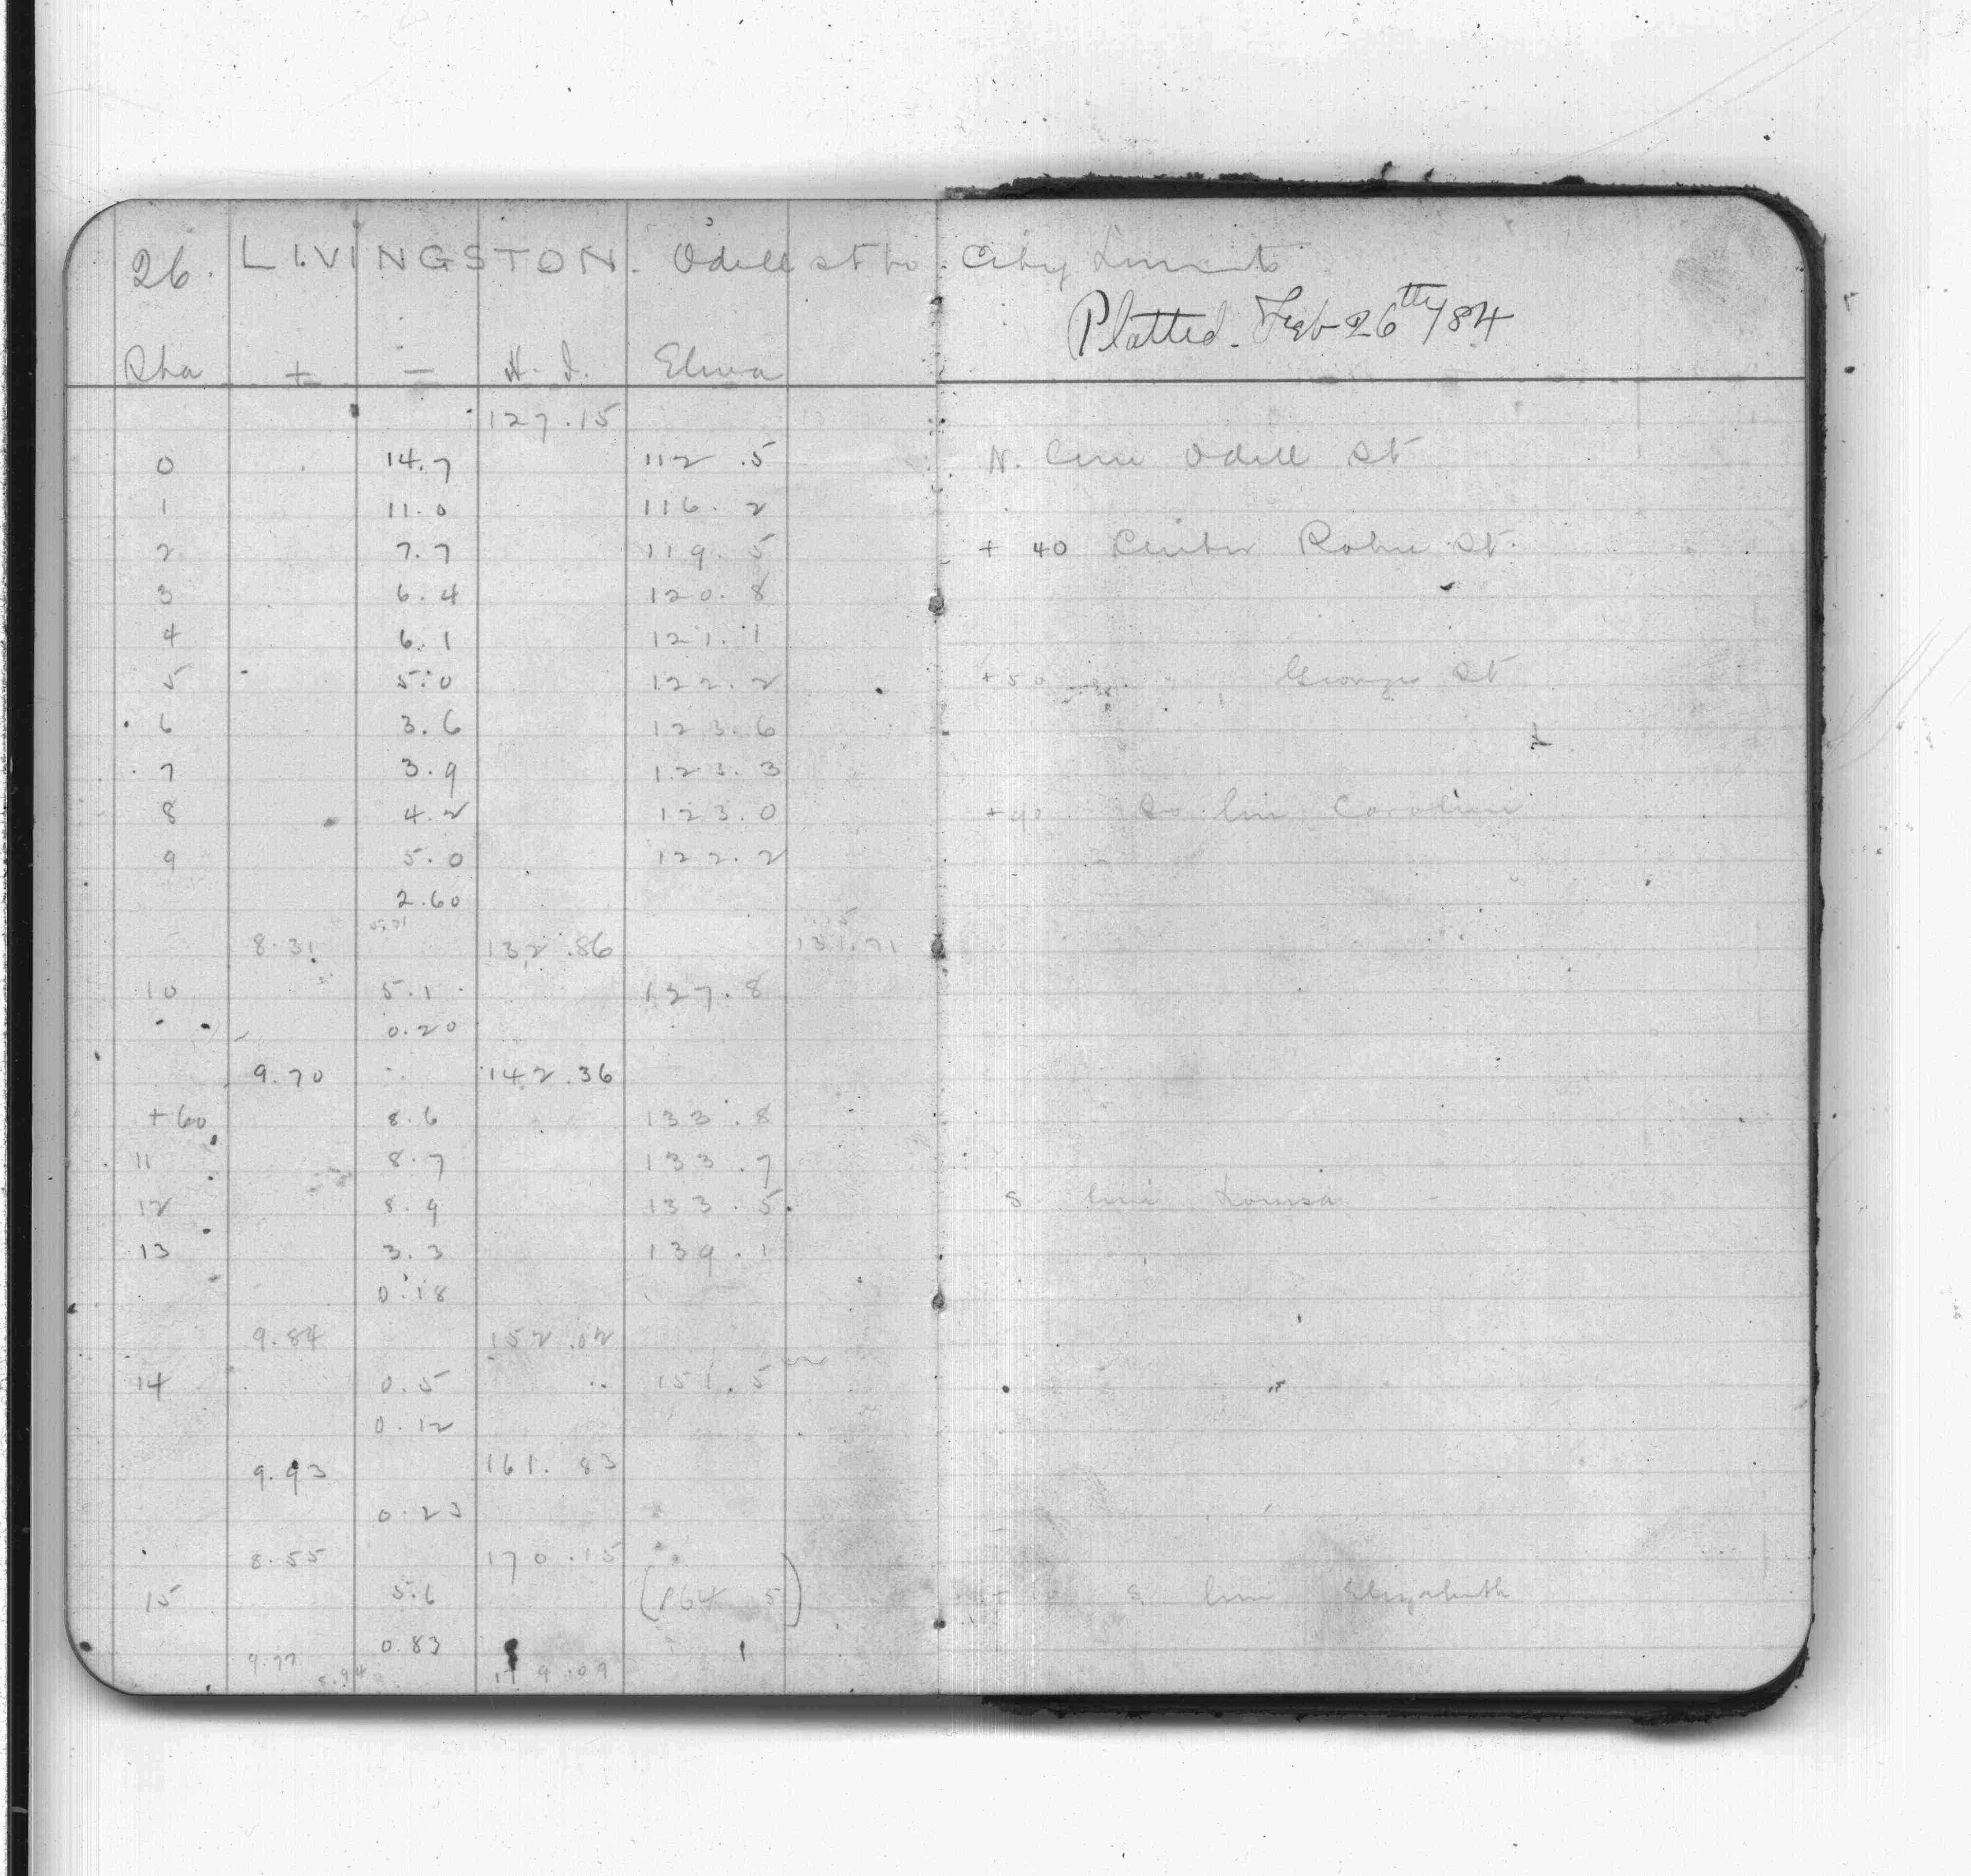 26. LIVINGSTON. Odell st to City Limits
Platted. Feb 26th /84
Sta + - H. I. Eleva
127.15
0 14.7 112.5 N. line Odell St
1 11.0 116.2
2 7.7 119.5 + 40 Center Robie St.
3 6.4 120.8
4 6.1 121.1
5 5.0 122.2 +50 George St
6 3.6 123.6
7 3.9 123.3
8 4.2 123.0 +90 So line Caroline
9 5.0 122.2
2.60
5.71
8.31 132.86 131.71
10 5.1 127.8
0.20
9.70 142.36
+60 8.6 133.8
11 8.7 133.7
12 8.9 133.5 S line Louisa
13 3.3 139.1
0.18
9.84 152.02
14 0.5 151.5
0.12
9.93 161.83
0.23
8.55 170.15
15 5.6 (164 5) S line Elizabeth
0.83
9.77 8.94 179.09